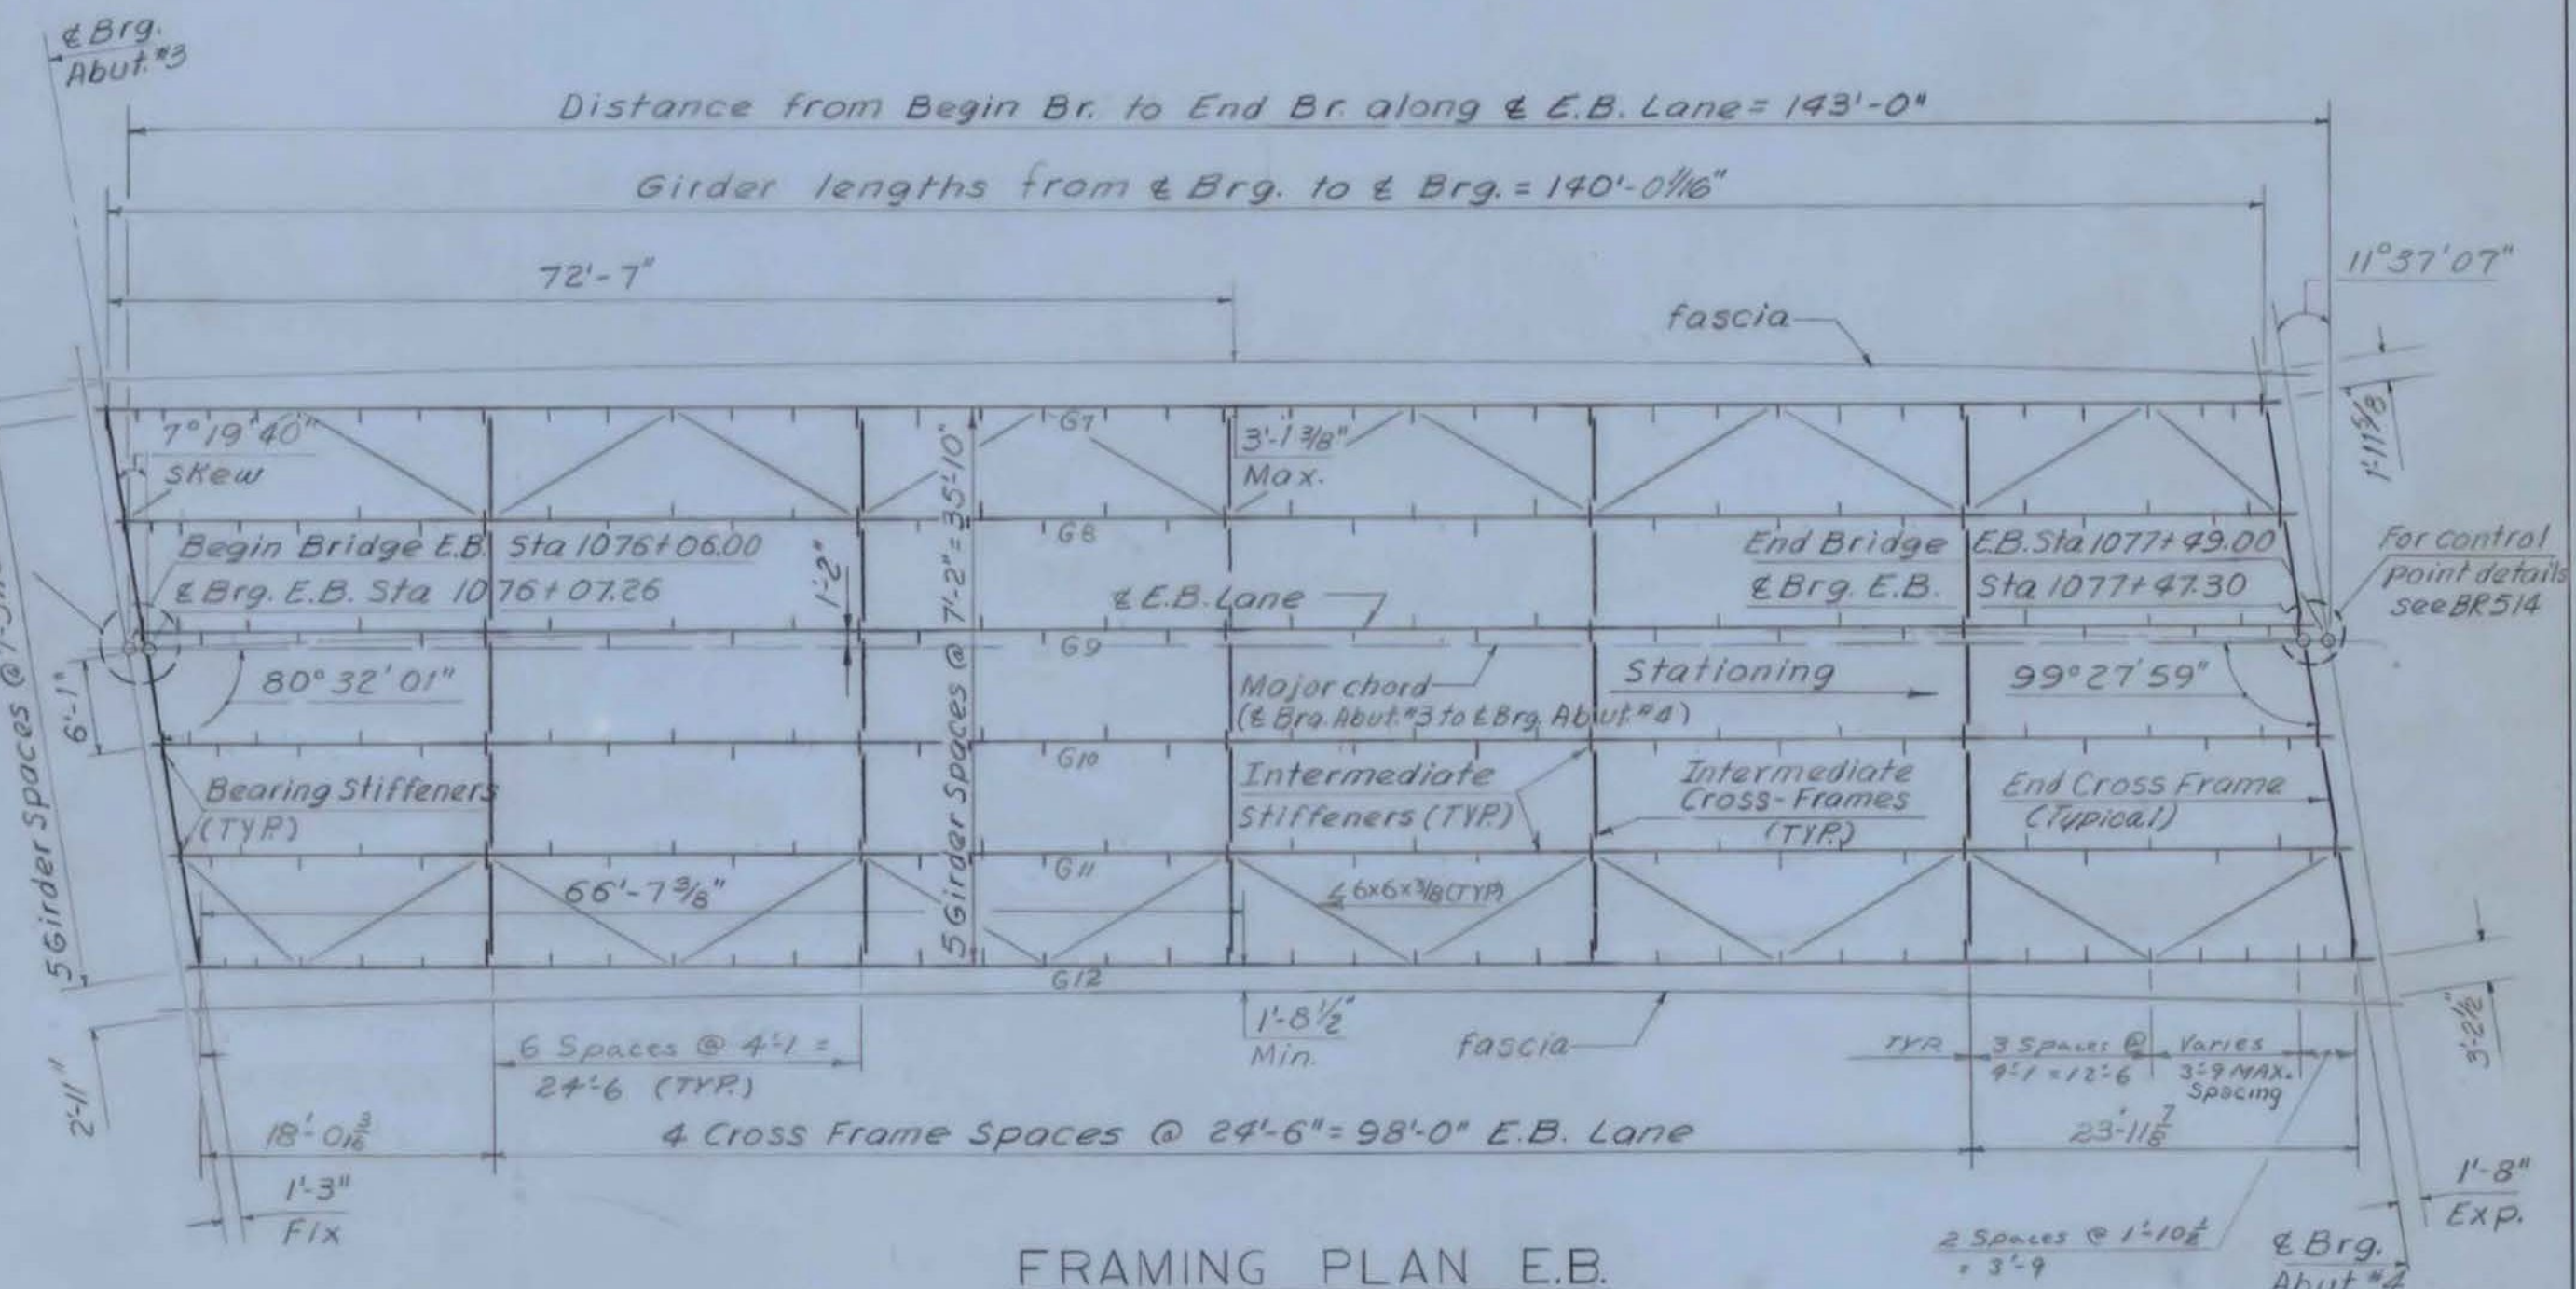 ℄ Brg.
Abut. #3
Distance from Begin Br. to End Br. along ℄ E.B. Lane = 143'-0"
Girder lengths from ℄ Brg. to ℄ Brg. = 140'-0 1/16"
72'-7"
11°37'07"
fascia
1'-11 5/8"
7°19'40"
skew
G7
3'-1 3/8"
Max.
5 Girder Spaces @ 7'-2" = 35'-10"
G8
Begin Bridge E.B. Sta 1076+06.00
℄ Brg. E.B. Sta 1076+07.26
1'-2"
End Bridge E.B. Sta 1077+49.00
℄ Brg. E.B. Sta 1077+47.30
For control
point details
see BR514
℄ E.B. Lane
G9
5 Girder Spaces @
6'-1"
80°32'01"
Major chord
(℄ Brg. Abut. #3 to ℄ Brg. Abut. #4)
Stationing
99°27'59"
G10
Bearing Stiffeners
(TYP.)
Intermediate
Stiffeners (TYP.)
Intermediate
Cross-Frames
(TYP.)
End Cross Frame
(Typical)
G11
66'-7 3/8"
∠ 6x6x3/8 (TYP)
G12
1'-8 1/2"
Min.
fascia
3'-2 1/2"
2'-11"
6 Spaces @ 4'-1 =
24'-6 (TYP.)
TYP.
3 Spaces @
4'-1 = 12'-6
Varies
3'-9 MAX.
Spacing
18'-0 3/16
4 Cross Frame Spaces @ 24'-6" = 98'-0" E.B. Lane
23'-11 7/8
1'-3"
Fix
1'-8"
Exp.
2 Spaces @ 1'-10 1/2
= 3'-9
℄ Brg.
Abut #4
FRAMING PLAN E.B.